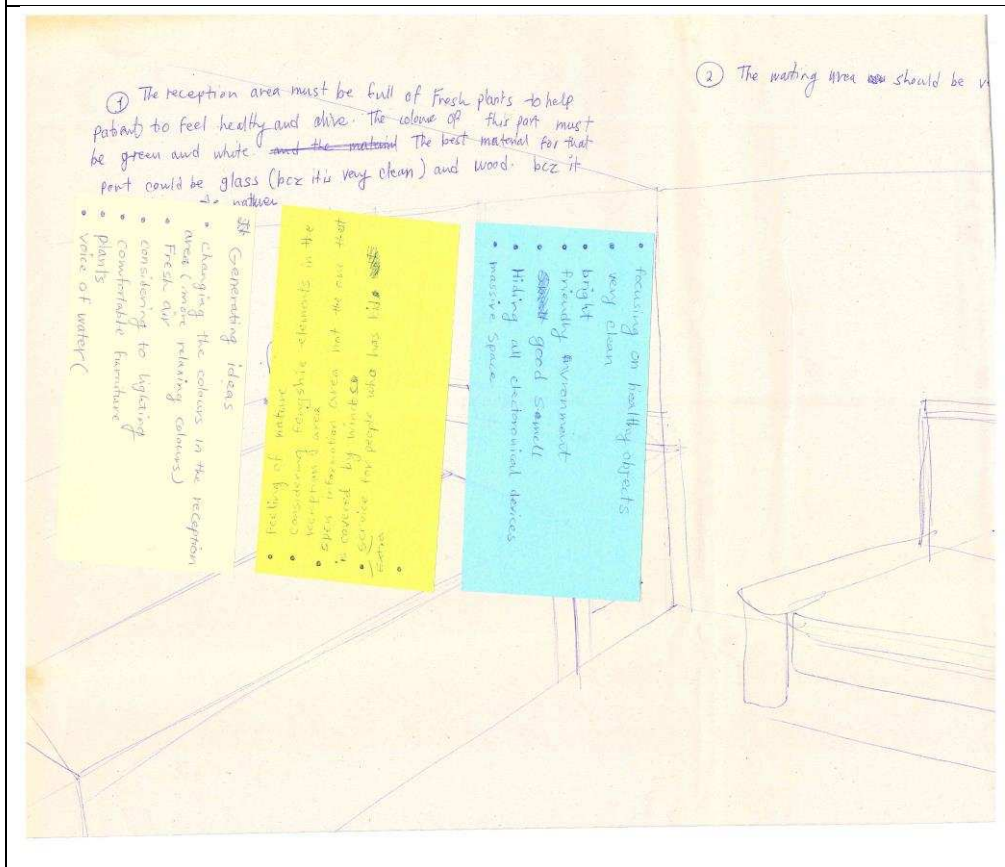 ① The reception area must be full of Fresh plants to help
patients to feel healthy and alive. The colour of this part must
be green and white. and the material The best material for that
part could be glass (bcz it is very clean) and wood. bcz it
nature
② The waiting area should be
Generating ideas
• changing the colours in the reception
area (more relaxing colours)
• Fresh air
• considering to lighting
• comfortable furniture
• plants
• voice of water (
• Feeling of nature
• considering Fengshie elements in the
reception area
• open information area not the one that
is covered by
• service for people who has kids
Extra
•
• focusing on healthy objects
• very clean
• bright
• friendly invironment
• good samell
• Hiding all electoronical devices
• massive space